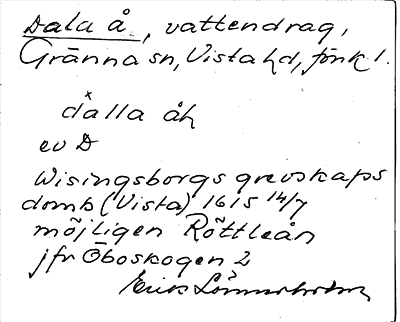 Dala å, vattendrag,
Gränna sn, Vista hd, Jönk l.
dålla åh
ev D
Wisingsborgs grevskaps
domb (Vista) 1615 14/7
möjligen Röttleån
jfr Öboskogen 2
Erik